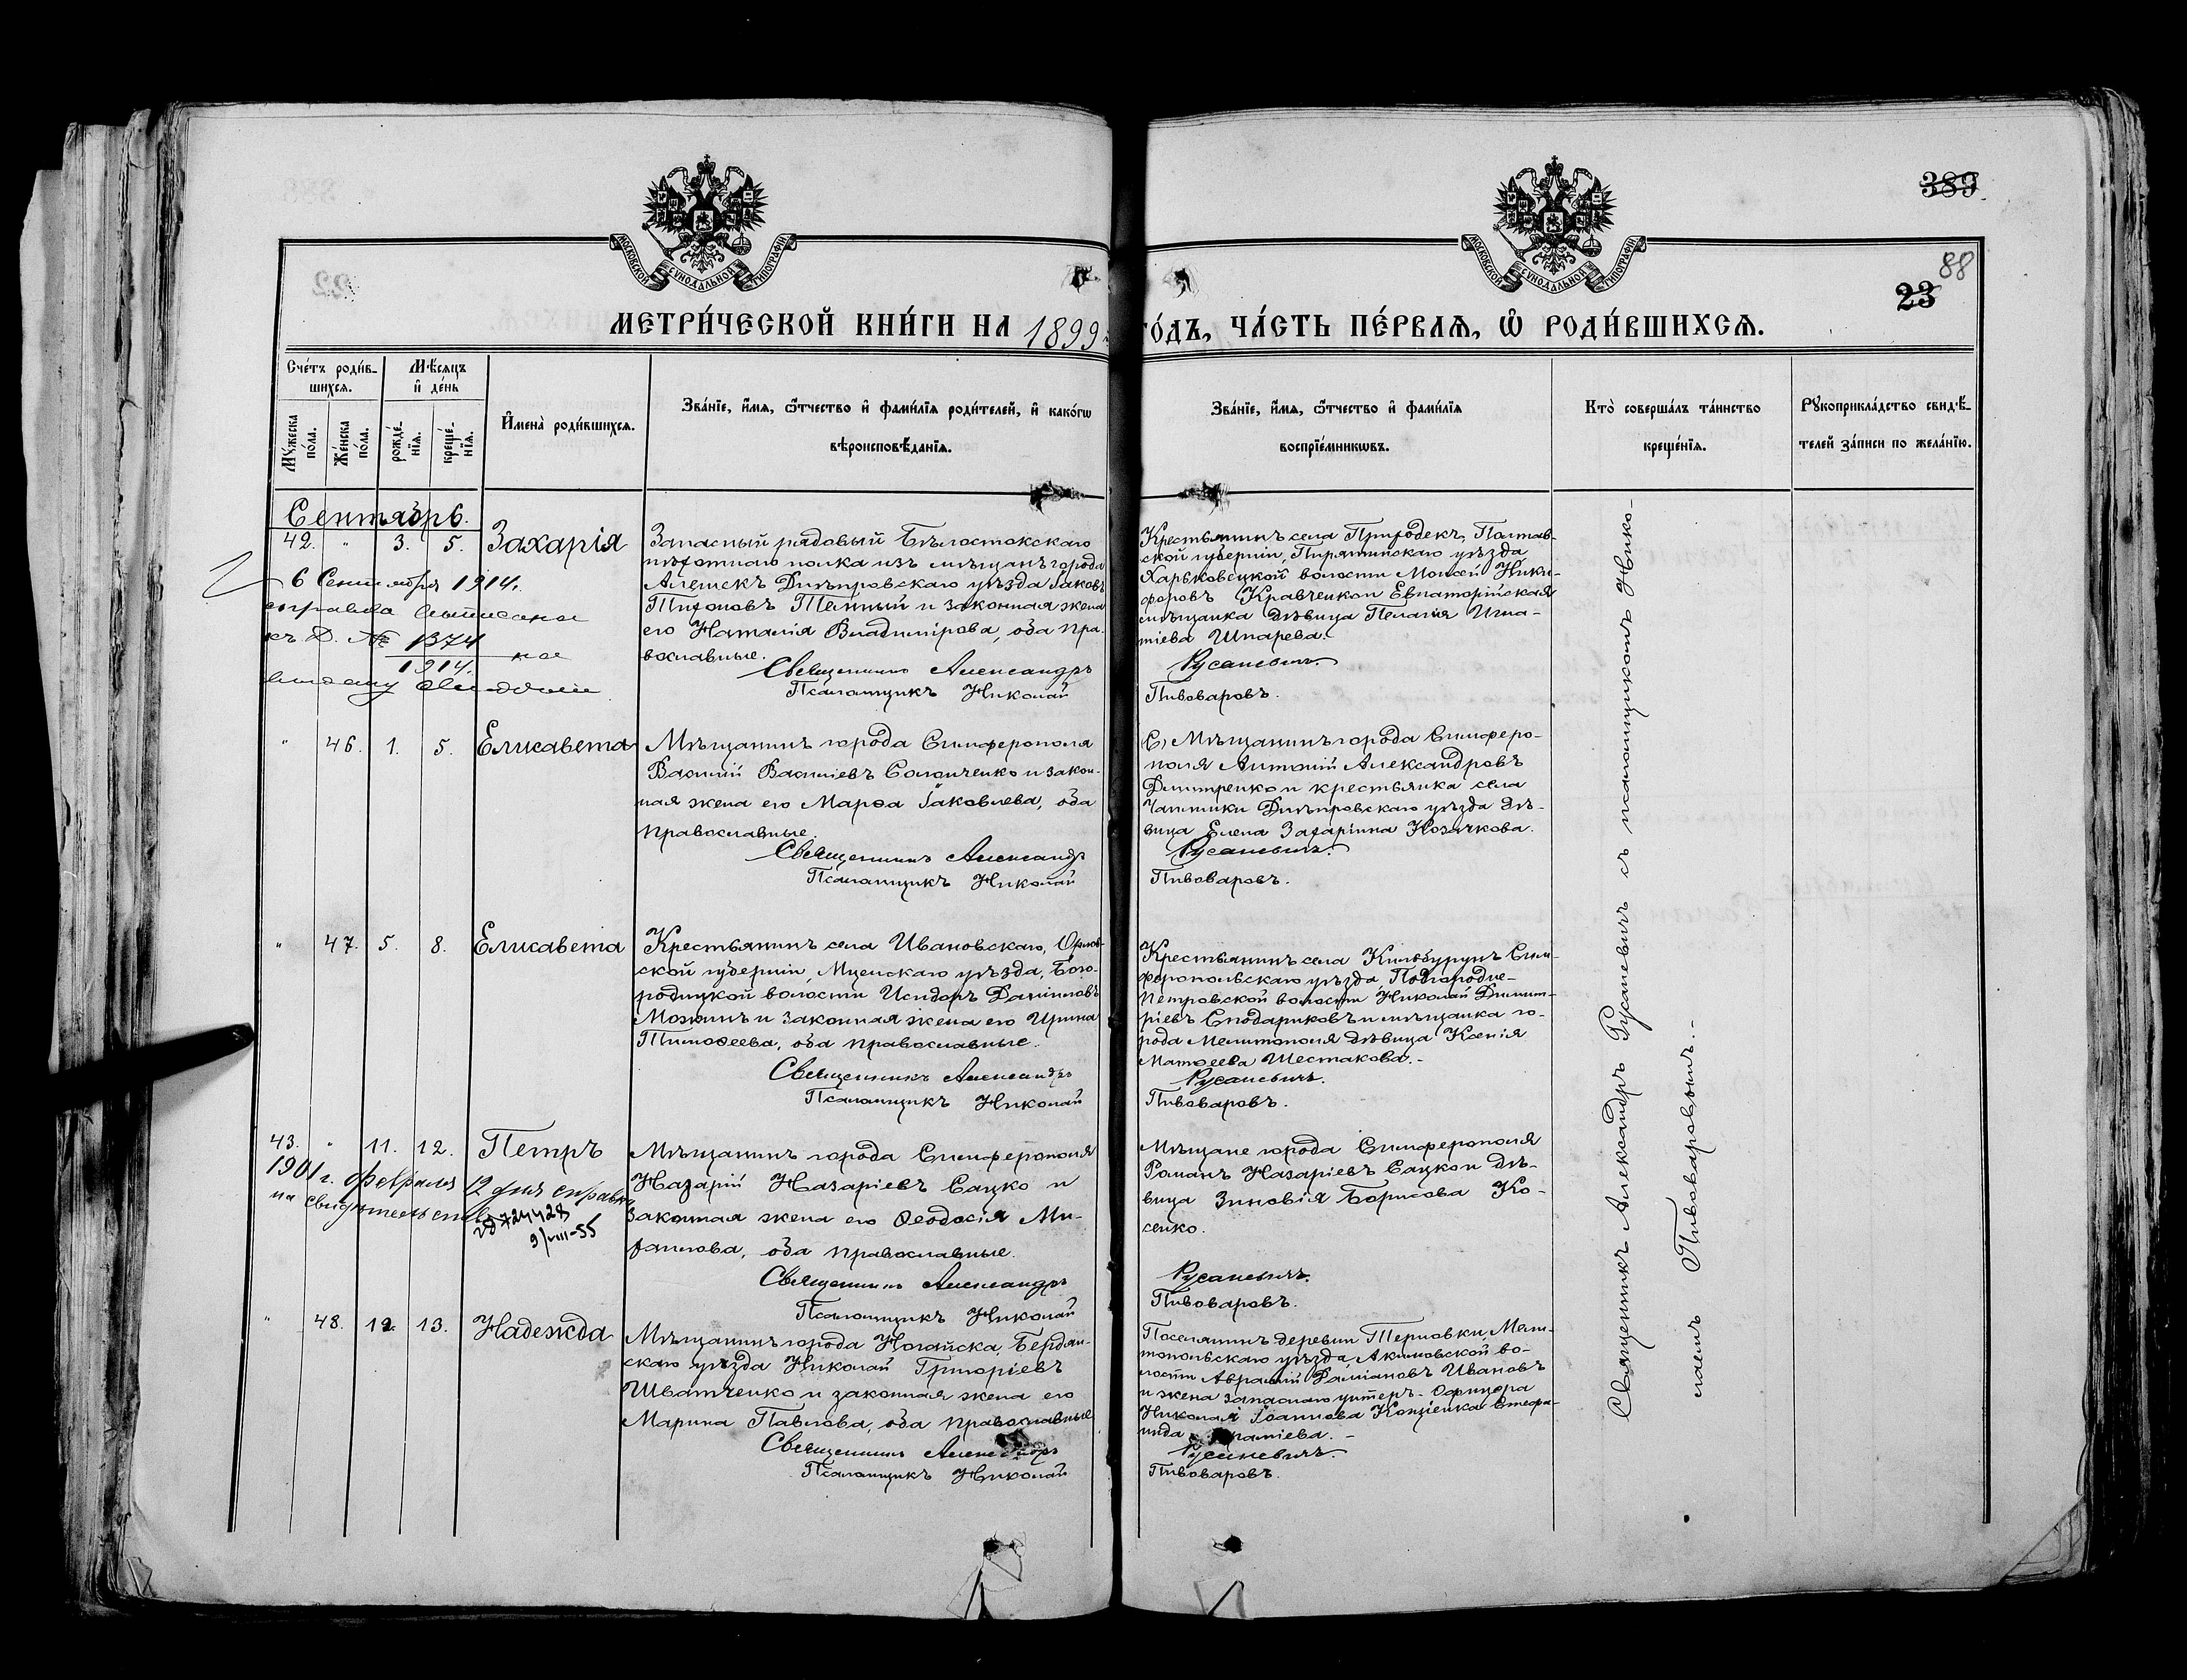 389
88
23
МОСКОВСКОЙ СѴНОДАЛЬНОЙ ТИПОГРАФІИ
МОСКОВСКОЙ СѴНОДАЛЬНОЙ ТИПОГРАФІИ
МЕТРИ́ЧЕСКОЙ КНИ́ГИ НА 1899 ГО́ДЪ, ЧА́СТЬ ПЕ́РВАѦ, Ѡ҆ РОДИ́ВШИХСѦ.
Сче́тъ роди́в-
шихсѧ.
Мѣ́сѧцъ
и҆ де́нь
Мꙋ́жеска по́ла.
Же́нска по́ла.
рожде́-нїѧ.
креще́-нїѧ.
И҆мена̀ роди́вшихсѧ.
Зва́нїе, и҆́мѧ, ѻ҆́тчество и҆ фами́лїѧ роди́телей, и҆ како́гѡ
вѣроисповѣ́данїѧ.
Зва́нїе, и҆́мѧ, ѻ҆́тчество и҆ фами́лїѧ
воспрїе́мникѡвъ.
Кто̀ соверша́лъ та́инство
креще́нїѧ.
Рꙋкоприкла́дство свидѣ́-
телей за́писи по жела́нїю.
Сентябрь.
42. " 3. 5. Захарія
Запасный рядовый Бѣлостокскаго
пѣхотнаго полка изъ мѣщанъ города
Алешекъ Днѣпровскаго уѣзда Іаковъ
Тихоновъ Темный и законная жена
его Наталія Владимірова, оба пра-
вославные.
Священникъ Александръ
Псаломщикъ Николай
Крестьянинъ села Природекъ, Полтав-
ской губерніи, Пирятинскаго уѣзда
Харьковецкой волости Моисей Ники-
форовъ Кравченко и Евпаторійская
мѣщанка дѣвица Пелагія Игна-
тіева Шпарева.
Русаневичъ.
Пивоваровъ.
6 Сентября 1914 г.
справка выписана
къ Д. № 1374
1914.
" 46. 1. 5. Елисавета
Мѣщанинъ города Симферополя
Василій Васильевъ Солонченко и закон-
ная жена его Марѳа Іаковлева, оба
православные.
Священникъ Александръ
Псаломщикъ Николай
Мѣщанинъ города Симферо-
поля Антоній Александровъ
Дмитренко и крестьянка села
Чаплинки Днѣпровскаго уѣзда дѣ-
вица Елена Захаріина Козачкова.
Русаневичъ.
Пивоваровъ.
" 47. 5. 8. Елисавета
Крестьянинъ села Ивановскаго, Орлов-
ской губерніи, Мценскаго уѣзда, Бого-
родицкой волости Исидоръ Данииловъ
Мохинъ и законная жена его Ирина
Тимоѳеева, оба православные.
Священникъ Александръ
Псаломщикъ Николай
Крестьянинъ села Кильбурунъ Сим-
феропольскаго уѣзда, Подгородне-
Петровской волости Николай Димит-
ріевъ Сподариковъ и мѣщанка го-
рода Мелитополя дѣвица Ксенія
Матѳеева Шестакова.-
Русаневичъ.
Пивоваровъ.
43. " 11. 12. Петръ
Мѣщанинъ города Симферополя
Назарій Назаріевъ Сацко и
законная жена его Ѳеодосія Ми-
хаилова, оба православные.
Священникъ Александръ
Псаломщикъ Николай
Мѣщане города Симферополя
Романъ Назаріевъ Сацко и дѣ-
вица Зиновія Борисова Ко-
сенко.
Русаневичъ.
Пивоваровъ.
1901 г. февраля 12 дня справка
на свидѣтельство
9/VIII-55
" 48. 12. 13. Надежда
Мѣщанинъ города Ногайска, Бердян-
скаго уѣзда Николай Григоріевъ
Шватченко и законная жена его
Марина Павлова, оба православные
Священникъ Александръ
Псаломщикъ Николай
Поселянинъ деревни Терновки, Мели-
топольскаго уѣзда, Акимовской во-
лости Аврамій Даміановъ Ивановъ
и жена запаснаго унтеръ-офицера
Николая Іоаннова Стефа-
нида
Русаневичъ.
Пивоваровъ.
Священникъ Александръ Русаневичъ съ псаломщикомъ Нико-
лаемъ Пивоваровымъ.-